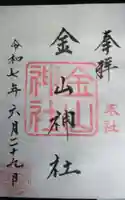 奉拝
金山神社
金山
神社
令和七年六月二十九日